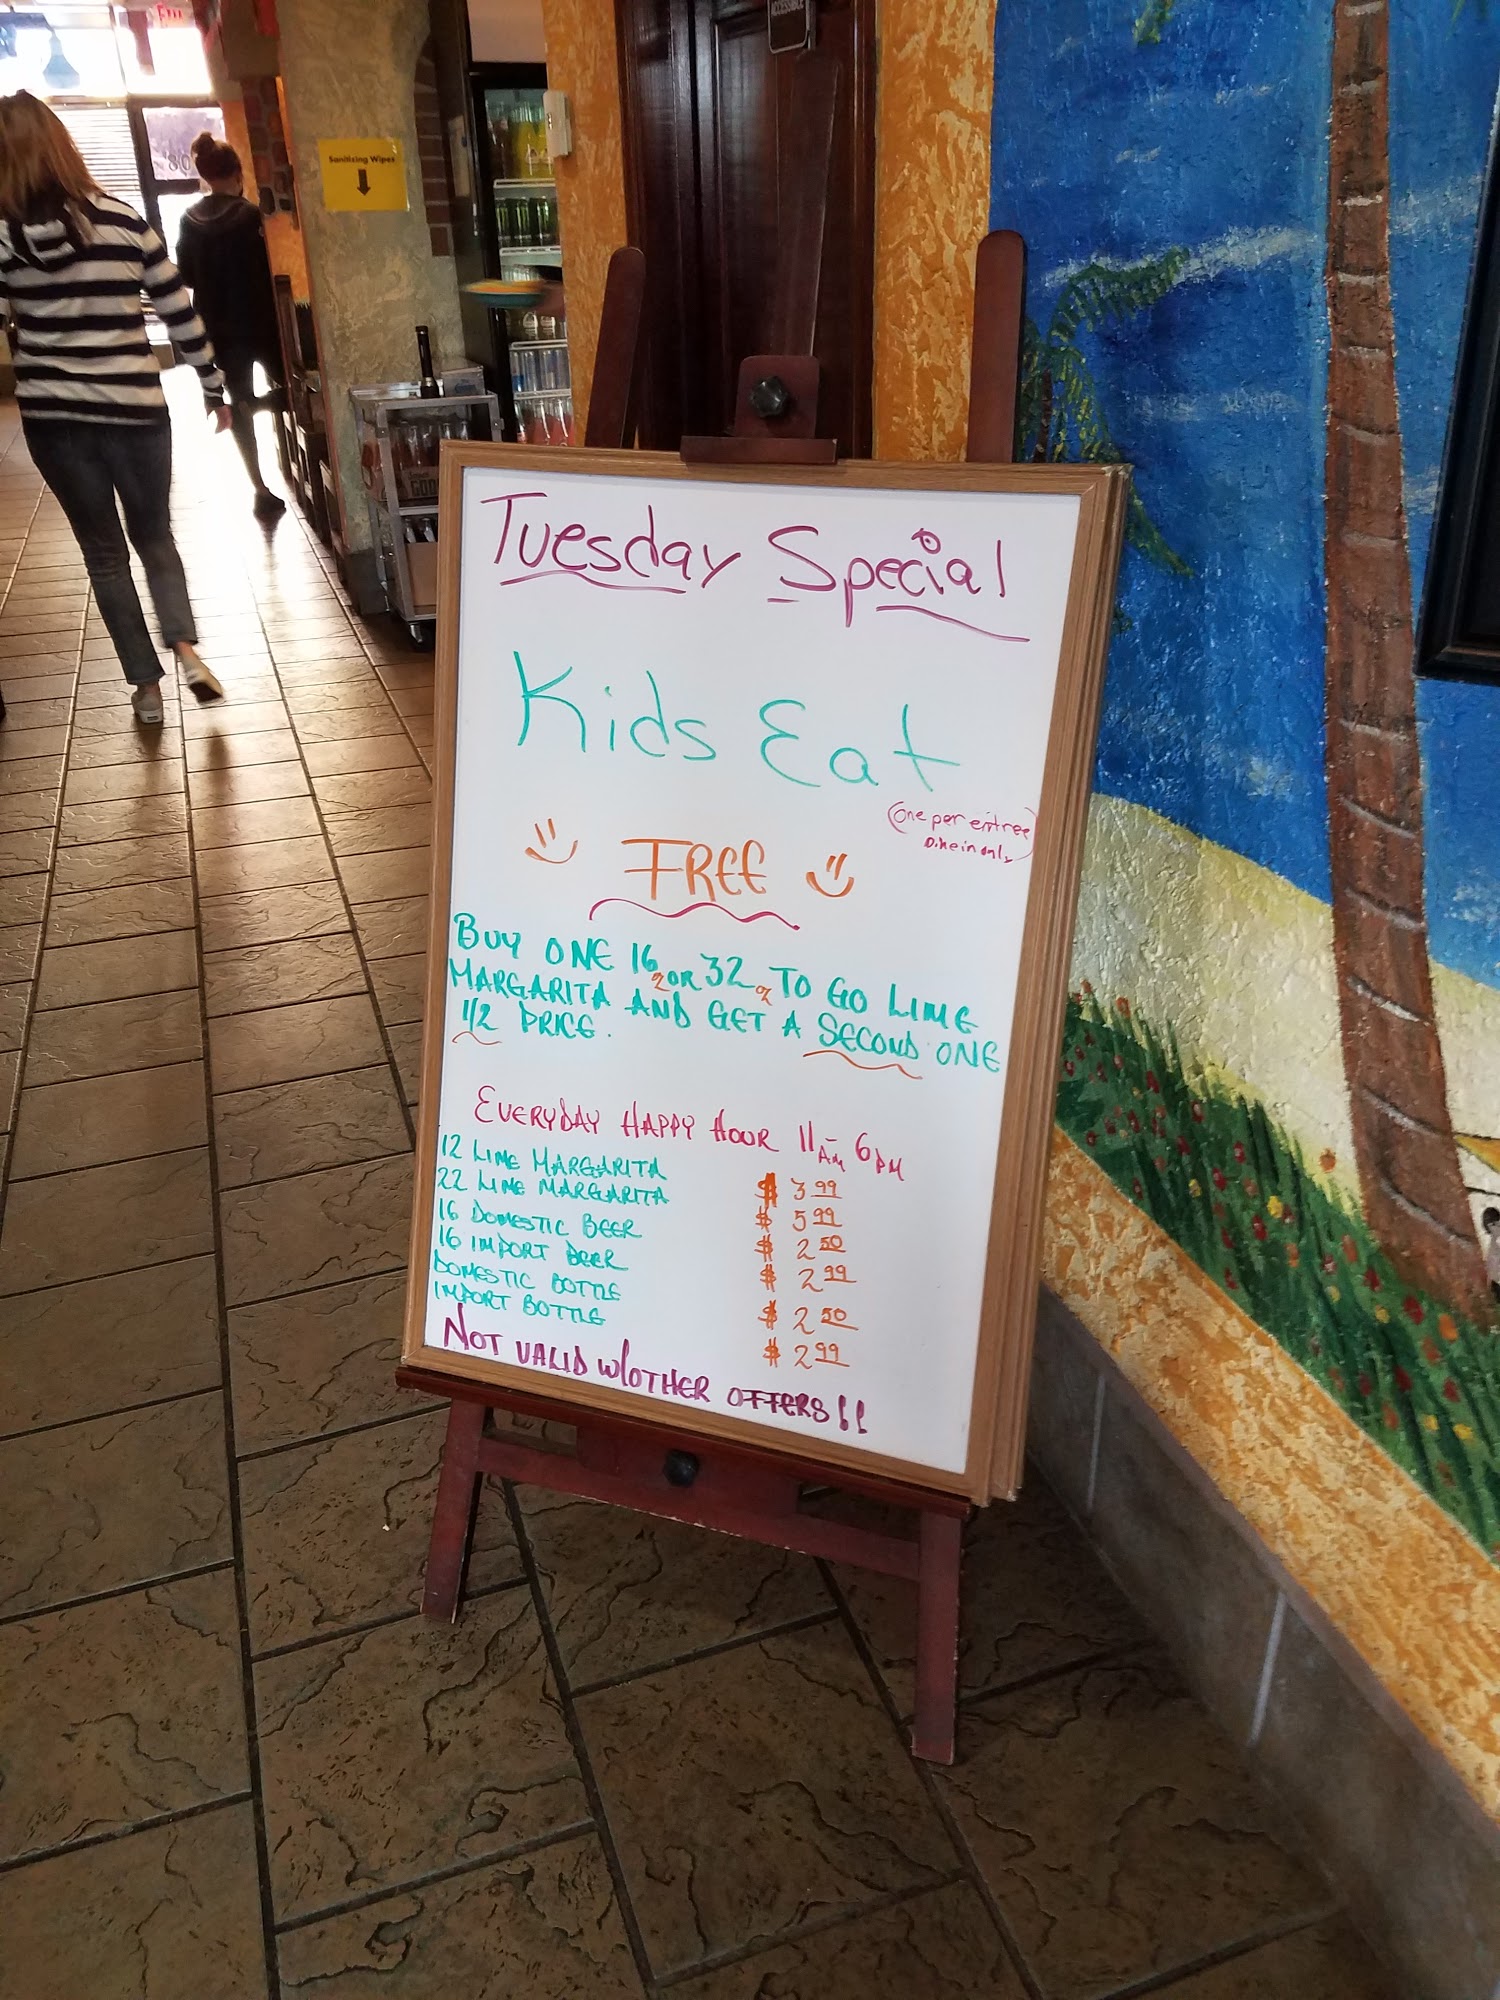 ACCESSIBLE
Sanitizing Wipes
Tuesday Special
Kids Eat
(One per entree
Dine in only)
FREE
BUY ONE 16oz OR 32oz TO GO LIME
MARGARITA AND GET A SECOND ONE
1/2 PRICE.
EVERYDAY HAPPY HOUR 11AM - 6PM
12 LIME MARGARITA $ 3.99
22 LIME MARGARITA $ 5.99
16 DOMESTIC BEER $ 2.50
16 IMPORT BEER $ 2.99
DOMESTIC BOTTLE $ 2.50
IMPORT BOTTLE $ 2.99
NOT VALID W/OTHER OFFERS!!